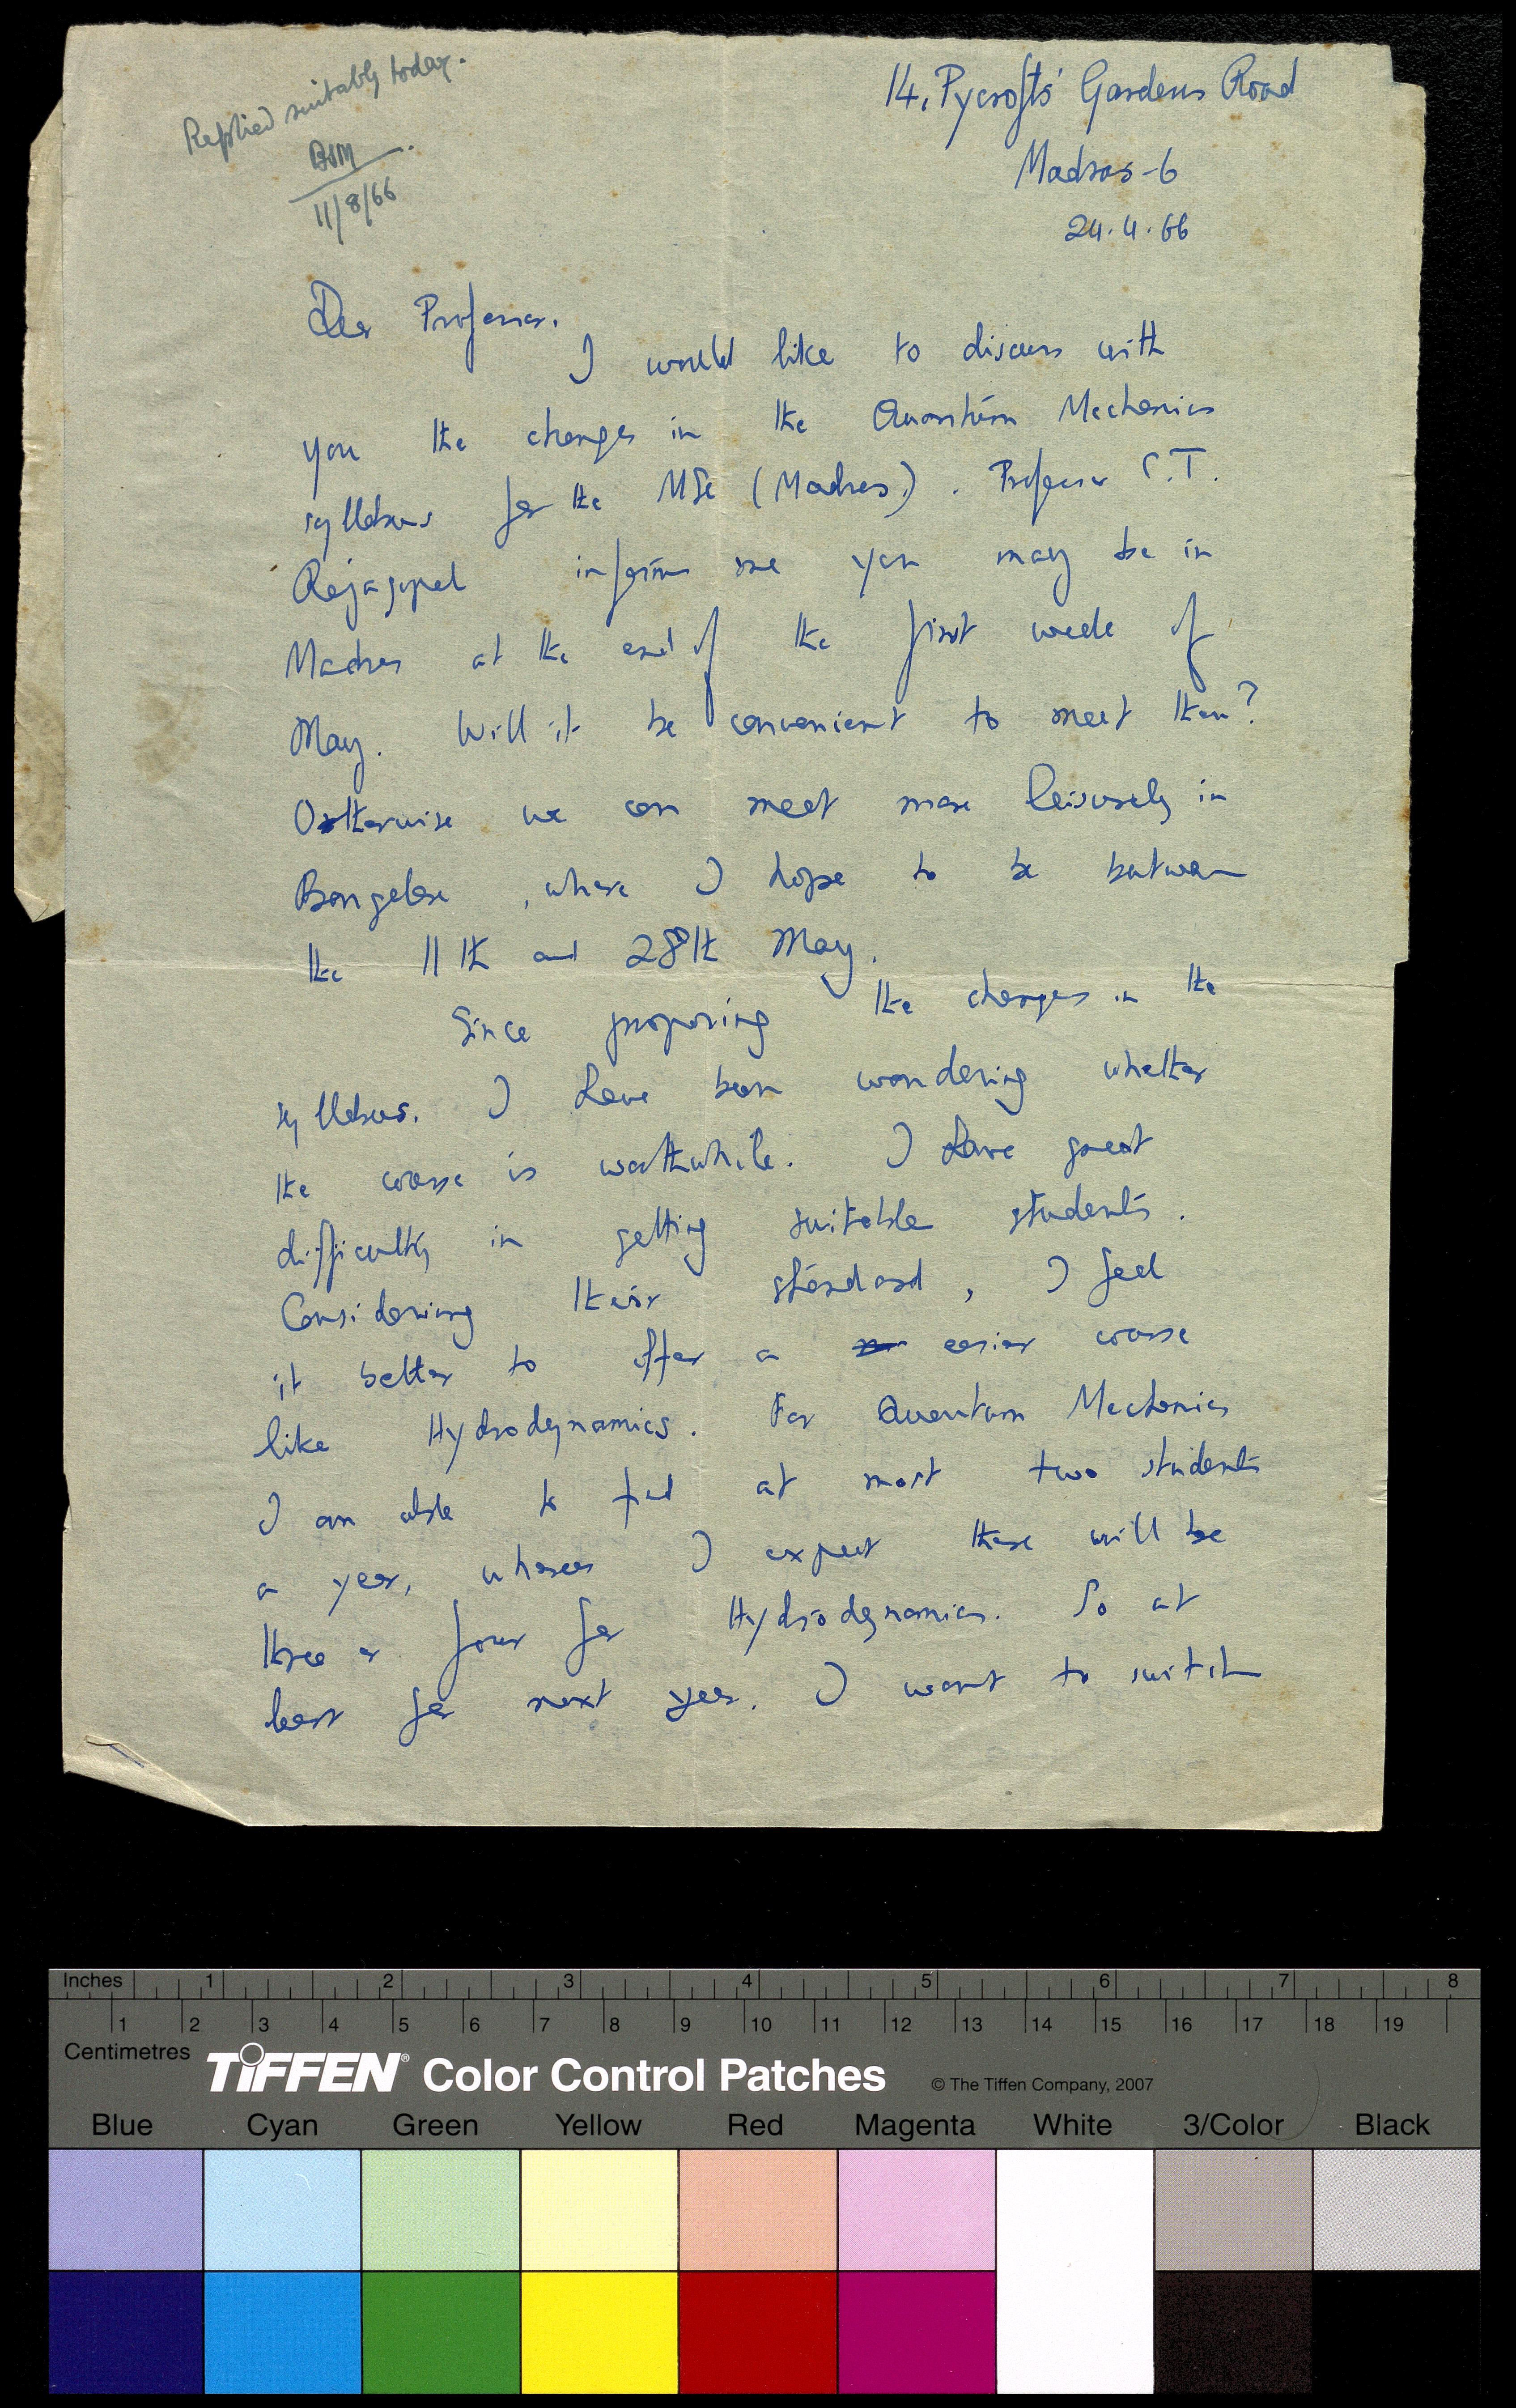 Replied suitably today.
BSM
11/8/66
14, Pycrofts' Gardens Road
Madras-6
24.4.66
Dear Professor,
I would like to discuss with
you the changes in the Quantum Mechanics
syllabus for the MSc (Madras). Professor C.T.
Rajagopal informs me you may be in
Madras at the end of the first week of
May. Will it be convenient to meet then?
Otherwise we can meet more leisurely in
Bangalore, where I hope to be between
the 11th and 28th May.
Since proposing the changes in the
syllabus, I have been wondering whether
the course is worthwhile. I have great
difficulty in getting suitable students.
Considering their standard, I feel
it better to offer a easier course
like Hydrodynamics. For Quantum Mechanics
I am able to find at most two students
a year, whereas I expect there will be
three or four for Hydrodynamics. So at
least for next year, I want to switch
Inches 1 2 3 4 5 6 7 8
1 2 3 4 5 6 7 8 9 10 11 12 13 14 15 16 17 18 19
Centimetres
TIFFEN® Color Control Patches © The Tiffen Company, 2007
Blue Cyan Green Yellow Red Magenta White 3/Color Black